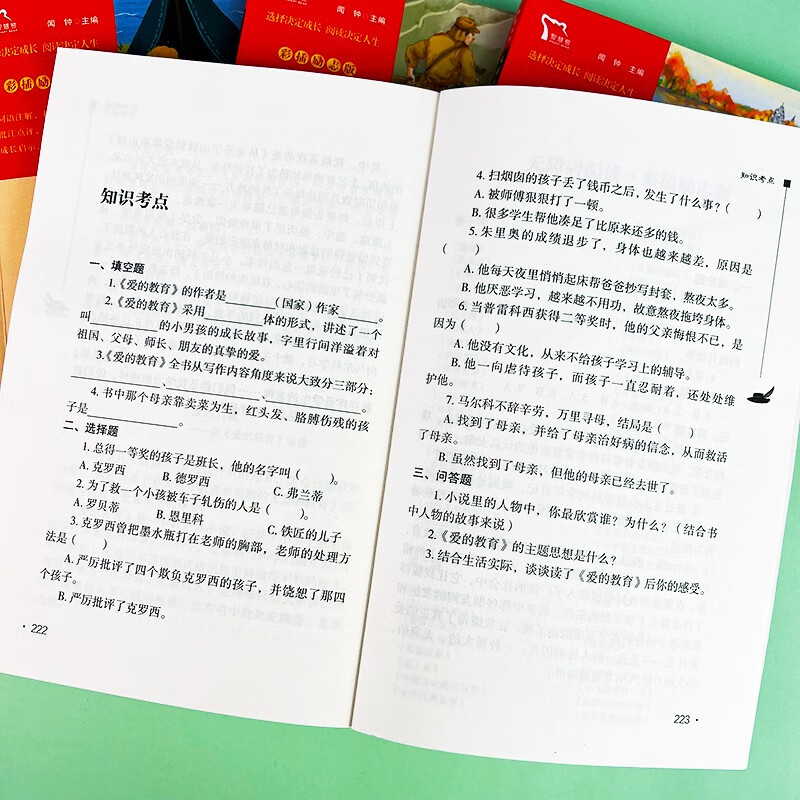 智慧熊
闻 钟 主编
选择决定成长 阅读决定人生
彩插励志版
闻 钟 主编
选择决定成长 阅读决定人生
彩插励志版
智慧熊
闻 钟 主编
选择决定成长 阅读决定人生
知识考点
一、填空题
1.《爱的教育》的作者是________(国家)作家________。
2.《爱的教育》采用________体的形式，讲述了一个
叫________的小男孩的成长故事，字里行间洋溢着对
祖国、父母、师长、朋友的真挚的爱。
3.《爱的教育》全书从写作内容角度来说大致分三部分：
________、________、________。
4. 书中那个母亲靠卖菜为生，红头发、胳膊伤残的孩
子是________。
二、选择题
1. 总得一等奖的孩子是班长，他的名字叫（ ）。
A. 克罗西 B. 德罗西 C. 弗兰蒂
2. 为了救一个小孩被车子轧伤的人是（ ）。
A. 罗贝蒂 B. 恩里科 C. 铁匠的儿子
3. 克罗西曾把墨水瓶打在老师的胸部，老师的处理方
法是（ ）
A. 严厉批评了四个欺负克罗西的孩子，并饶恕了那四
个孩子。
B. 严厉批评了克罗西。
· 222
知识考点
4. 扫烟囱的孩子丢了钱币之后，发生了什么事？（ ）
A. 被师傅狠狠打了一顿。
B. 很多学生帮他凑足了比原来还多的钱。
5. 朱里奥的成绩退步了，身体也越来越差，原因是
（ ）
A. 他每天夜里悄悄起床帮爸爸抄写封套，熬夜太多。
B. 他厌恶学习，越来越不用功，故意熬夜拖垮身体。
6. 当普雷科西获得二等奖时，他的父亲悔恨不已，是
因为（ ）
A. 他没有文化，从来不给孩子学习上的辅导。
B. 他一向虐待孩子，而孩子一直忍耐着，还处处维
护他。
7. 马尔科不辞辛劳，万里寻母，结局是（ ）
A. 找到了母亲，并给了母亲治好病的信念，从而救活
了母亲。
B. 虽然找到了母亲，但他的母亲已经去世了。
三、问答题
1. 小说里的人物中，你最欣赏谁？为什么？（结合书
中人物的故事来说）
2.《爱的教育》的主题思想是什么？
3. 结合生活实际，谈谈读了《爱的教育》后你的感受。
223 ·